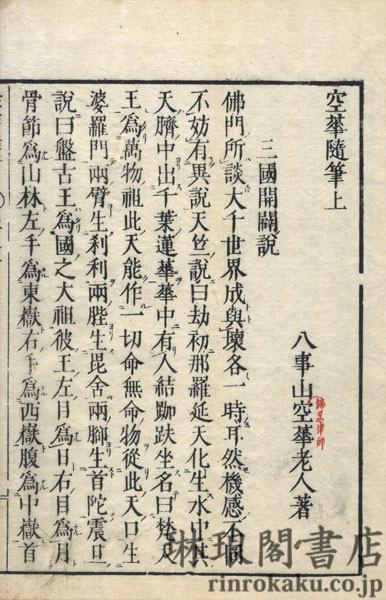 空華隨筆上
八事山空華老人著
三國開闢說
佛門所談大千世界成與壞各一時耳然機感不同
不妨有異說天竺說曰劫初那羅延天化生水中其
天臍中出千葉蓮華華中有人結跏趺坐名曰梵天
王為萬物祖此天能作一切命無命物從此天口生
婆羅門兩臂生剎利兩脞生毘舍兩腳生首陀震旦
說曰盤古王為國之大祖彼王左目為日右目為月
骨節為山林左手為東嶽右手為西嶽腹為中嶽首
琳琅閣書店
rinrokaku.co.jp